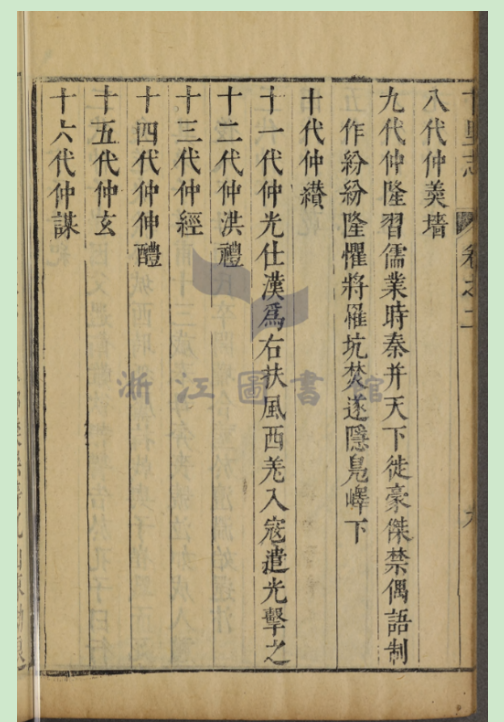 卷之二
八代仲羙墻
九代仲隆習儒業時秦并天下徙豪傑禁偶語制
作紛紛隆懼將罹坑焚遂隱鳧嶧下
十代仲纘
十一代仲光仕漢爲右扶風西羗入寇遣光擊之
十二代仲洪禮
十三代仲經
十四代仲仲醴
十五代仲玄
十六代仲謀
浙江圖書館